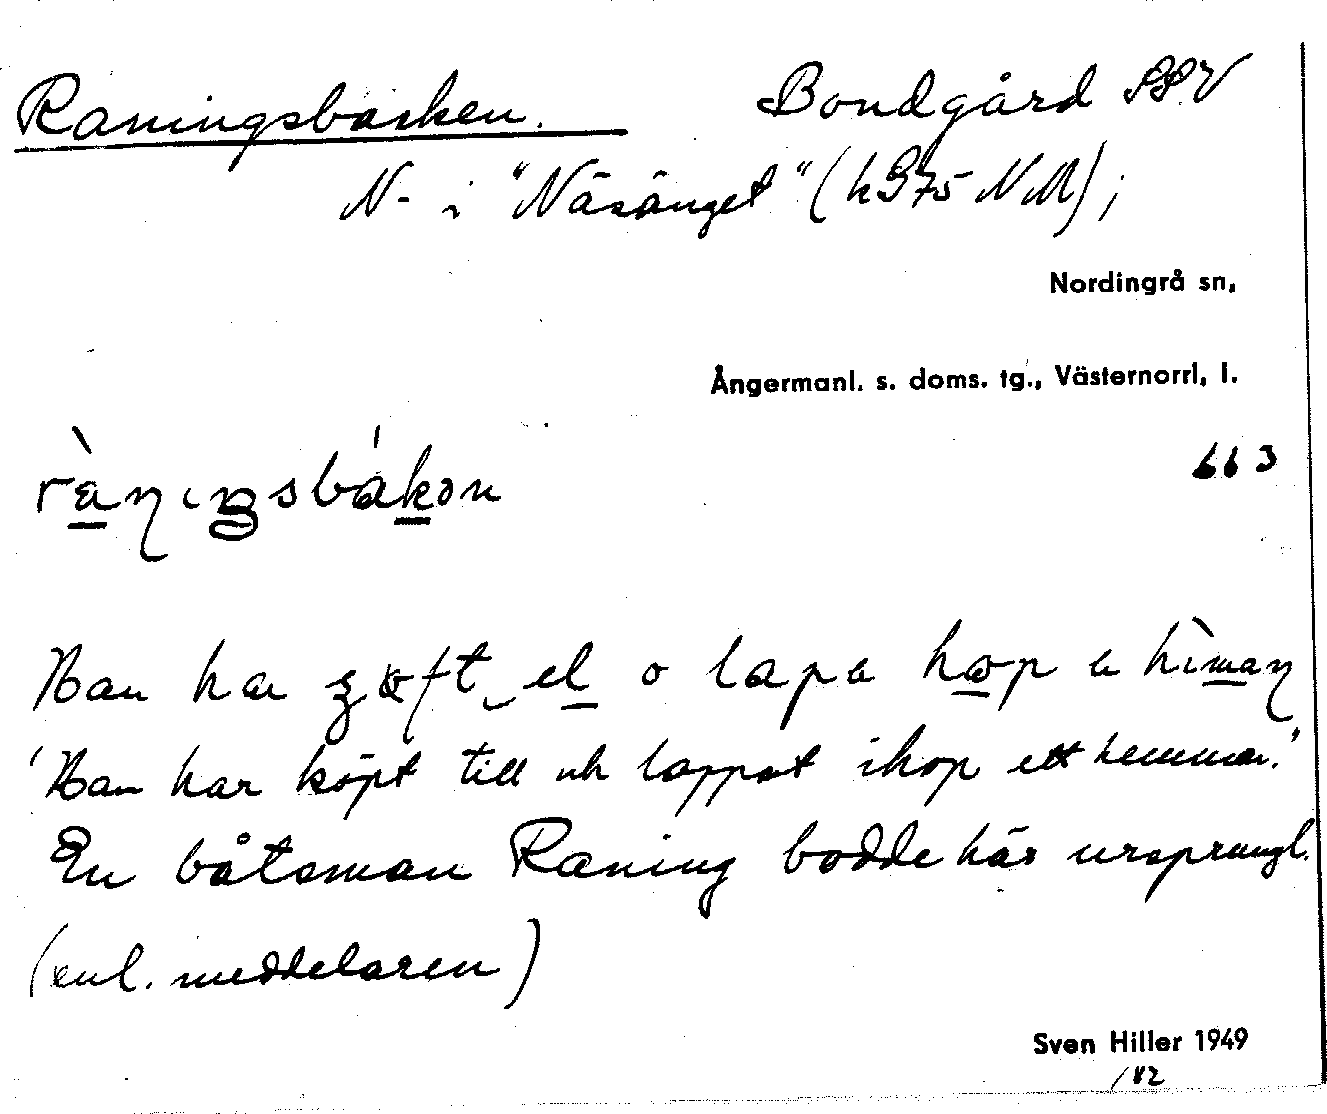 Raningsbacken. Bondgård SSV
N- i "Näsänget" (h375 NM);
Nordingrå sn,
Ångermanl. s. doms. tg., Västernorrl, l.
663
Han ha
'Han har köpt till och lappat ihop ett hemman.'
En båtsman Raning bodde här ursprungl.
(enl. meddelaren)
Sven Hiller 1949
182